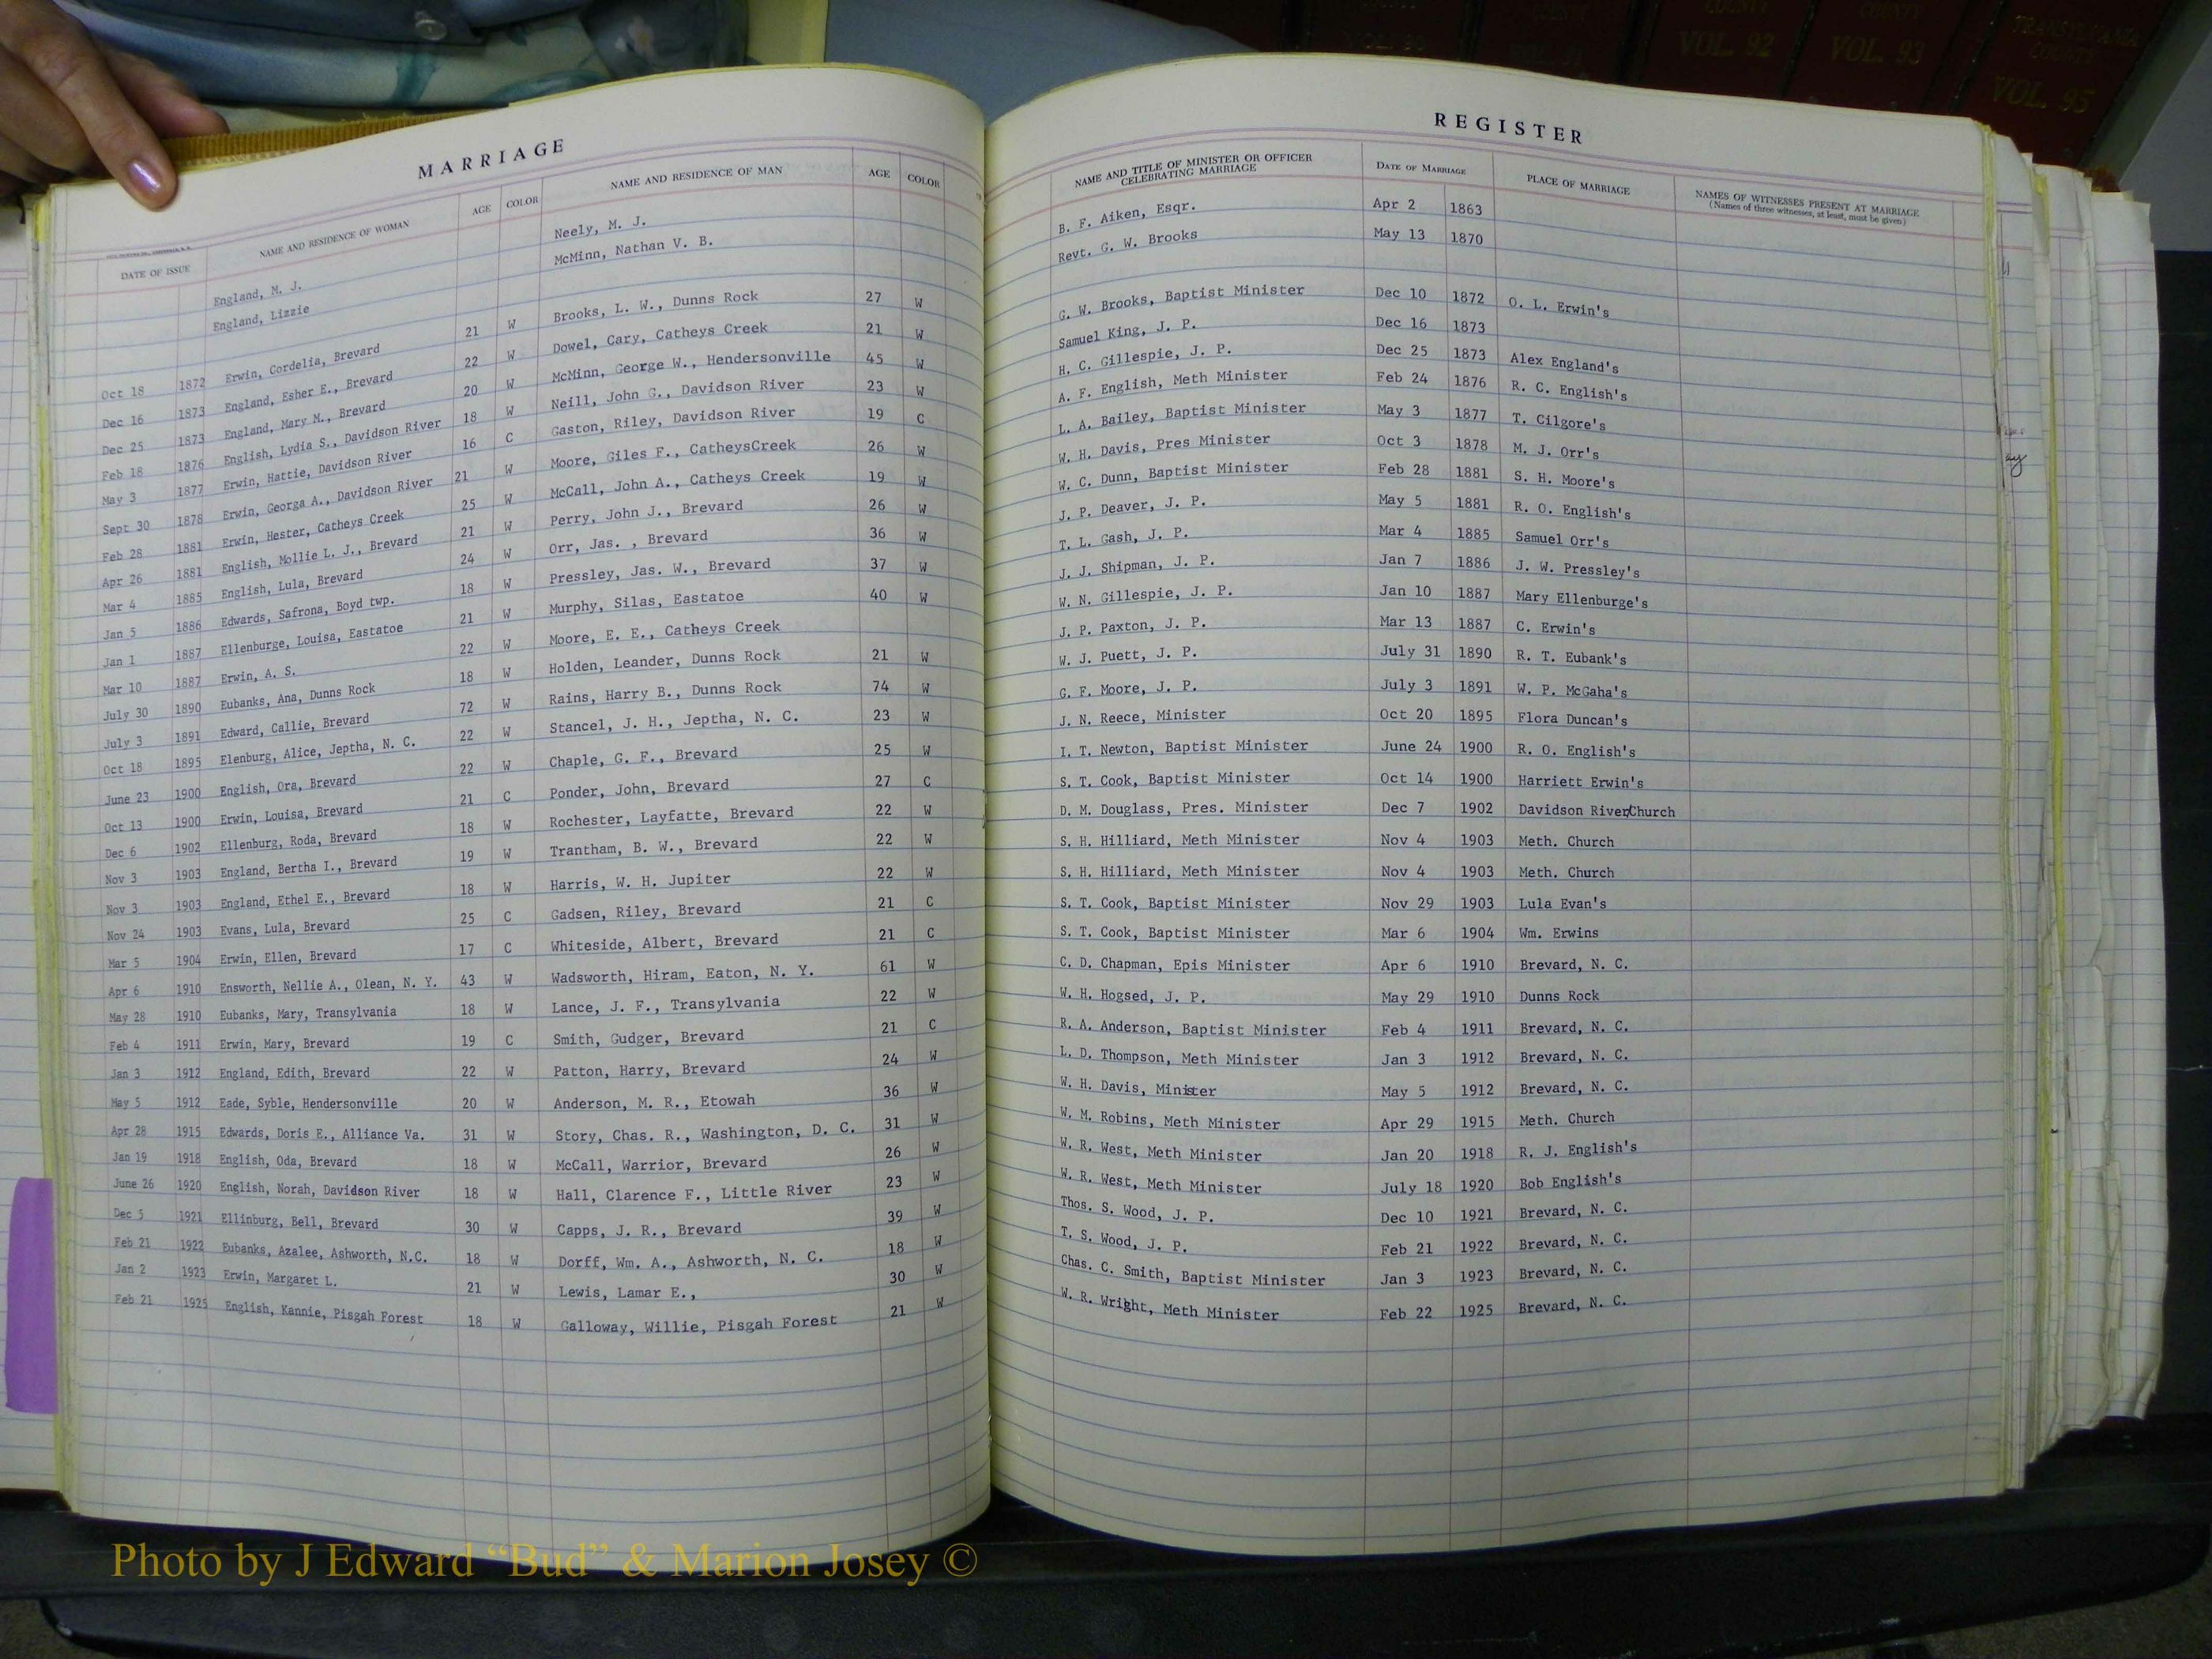 MARRIAGE
REGISTER
DATE OF ISSUE NAME AND RESIDENCE OF WOMAN AGE COLOR NAME AND RESIDENCE OF MAN AGE COLOR NAME AND TITLE OF MINISTER OR OFFICER CELEBRATING MARRIAGE DATE OF MARRIAGE PLACE OF MARRIAGE NAMES OF WITNESSES PRESENT AT MARRIAGE (Names of three witnesses, at least, must be given)
England, M. J. Neely, M. J. B. F. Aiken, Esqr. Apr 2 1863
England, Lizzie McMinn, Nathan V. B. Revt. G. W. Brooks May 13 1870
Oct 18 1872 Erwin, Cordelia, Brevard 21 W Brooks, L. W., Dunns Rock 27 W G. W. Brooks, Baptist Minister Dec 10 1872 O. L. Erwin's
Dec 16 1873 England, Esher E., Brevard 22 W Dowel, Cary, Catheys Creek 21 W Samuel King, J. P. Dec 16 1873
Dec 25 1873 England, Mary M., Brevard 20 W McMinn, George W., Hendersonville 45 W H. C. Gillespie, J. P. Dec 25 1873 Alex England's
Feb 18 1876 English, Lydia S., Davidson River 18 W Neill, John G., Davidson River 23 W A. F. English, Meth Minister Feb 24 1876 R. C. English's
May 3 1877 Erwin, Hattie, Davidson River 16 C Gaston, Riley, Davidson River 19 C L. A. Bailey, Baptist Minister May 3 1877 T. Cilgore's
Sept 30 1878 Erwin, Georga A., Davidson River 21 W Moore, Giles F., CatheysCreek 26 W W. H. Davis, Pres Minister Oct 3 1878 M. J. Orr's
Feb 28 1881 Erwin, Hester, Catheys Creek 25 W McCall, John A., Catheys Creek 19 W W. C. Dunn, Baptist Minister Feb 28 1881 S. H. Moore's
Apr 26 1881 English, Mollie L. J., Brevard 21 W Perry, John J., Brevard 26 W J. P. Deaver, J. P. May 5 1881 R. O. English's
Mar 4 1885 English, Lula, Brevard 24 W Orr, Jas. , Brevard 36 W T. L. Gash, J. P. Mar 4 1885 Samuel Orr's
Jan 5 1886 Edwards, Safrona, Boyd twp. 18 W Pressley, Jas. W., Brevard 37 W J. J. Shipman, J. P. Jan 7 1886 J. W. Pressley's
Jan 1 1887 Ellenburge, Louisa, Eastatoe 21 W Murphy, Silas, Eastatoe 40 W W. N. Gillespie, J. P. Jan 10 1887 Mary Ellenburge's
Mar 10 1887 Erwin, A. S. 22 W Moore, E. E., Catheys Creek J. P. Paxton, J. P. Mar 13 1887 C. Erwin's
July 30 1890 Eubanks, Ana, Dunns Rock 18 W Holden, Leander, Dunns Rock 21 W W. J. Puett, J. P. July 31 1890 R. T. Eubank's
July 3 1891 Edward, Callie, Brevard 72 W Rains, Harry B., Dunns Rock 74 W G. F. Moore, J. P. July 3 1891 W. P. McGaha's
Oct 18 1895 Elenburg, Alice, Jeptha, N. C. 22 W Stancel, J. H., Jeptha, N. C. 23 W J. N. Reece, Minister Oct 20 1895 Flora Duncan's
June 23 1900 English, Ora, Brevard 22 W Chaple, G. F., Brevard 25 W I. T. Newton, Baptist Minister June 24 1900 R. O. English's
Oct 13 1900 Erwin, Louisa, Brevard 21 C Ponder, John, Brevard 27 C S. T. Cook, Baptist Minister Oct 14 1900 Harriett Erwin's
Dec 6 1902 Ellenburg, Roda, Brevard 18 W Rochester, Layfatte, Brevard 22 W D. M. Douglass, Pres. Minister Dec 7 1902 Davidson River,Church
Nov 3 1903 England, Bertha I., Brevard 19 W Trantham, B. W., Brevard 22 W S. H. Hilliard, Meth Minister Nov 4 1903 Meth. Church
Nov 3 1903 England, Ethel E., Brevard 18 W Harris, W. H. Jupiter 22 W S. H. Hilliard, Meth Minister Nov 4 1903 Meth. Church
Nov 24 1903 Evans, Lula, Brevard 25 C Gadsen, Riley, Brevard 21 C S. T. Cook, Baptist Minister Nov 29 1903 Lula Evan's
Mar 5 1904 Erwin, Ellen, Brevard 17 C Whiteside, Albert, Brevard 21 C S. T. Cook, Baptist Minister Mar 6 1904 Wm. Erwins
Apr 6 1910 Ensworth, Nellie A., Olean, N. Y. 43 W Wadsworth, Hiram, Eaton, N. Y. 61 W C. D. Chapman, Epis Minister Apr 6 1910 Brevard, N. C.
May 28 1910 Eubanks, Mary, Transylvania 18 W Lance, J. F., Transylvania 22 W W. H. Hogsed, J. P. May 29 1910 Dunns Rock
Feb 4 1911 Erwin, Mary, Brevard 19 C Smith, Gudger, Brevard 21 C R. A. Anderson, Baptist Minister Feb 4 1911 Brevard, N. C.
Jan 3 1912 England, Edith, Brevard 22 W Patton, Harry, Brevard 24 W L. D. Thompson, Meth Minister Jan 3 1912 Brevard, N. C.
May 5 1912 Eade, Syble, Hendersonville 20 W Anderson, M. R., Etowah 36 W W. H. Davis, Minister May 5 1912 Brevard, N. C.
Apr 28 1915 Edwards, Doris E., Alliance Va. 31 W Story, Chas. R., Washington, D. C. 31 W W. M. Robins, Meth Minister Apr 29 1915 Meth. Church
Jan 19 1918 English, Oda, Brevard 18 W McCall, Warrior, Brevard 26 W W. R. West, Meth Minister Jan 20 1918 R. J. English's
June 26 1920 English, Norah, Davidson River 18 W Hall, Clarence F., Little River 23 W W. R. West, Meth Minister July 18 1920 Bob English's
Dec 5 1921 Ellinburg, Bell, Brevard 30 W Capps, J. R., Brevard 39 W Thos. S. Wood, J. P. Dec 10 1921 Brevard, N. C.
Feb 21 1922 Eubanks, Azalee, Ashworth, N.C. 18 W Dorff, Wm. A., Ashworth, N. C. 18 W T. S. Wood, J. P. Feb 21 1922 Brevard, N. C.
Jan 2 1923 Erwin, Margaret L. 21 W Lewis, Lamar E., 30 W Chas. C. Smith, Baptist Minister Jan 3 1923 Brevard, N. C.
Feb 21 1925 English, Kannie, Pisgah Forest 18 W Galloway, Willie, Pisgah Forest 21 W W. R. Wright, Meth Minister Feb 22 1925 Brevard, N. C.
COUNTY VOL. 92
COUNTY VOL. 93
TRANSYLVANIA COUNTY VOL. 95
Photo by J Edward “Bud” & Marion Josey ©